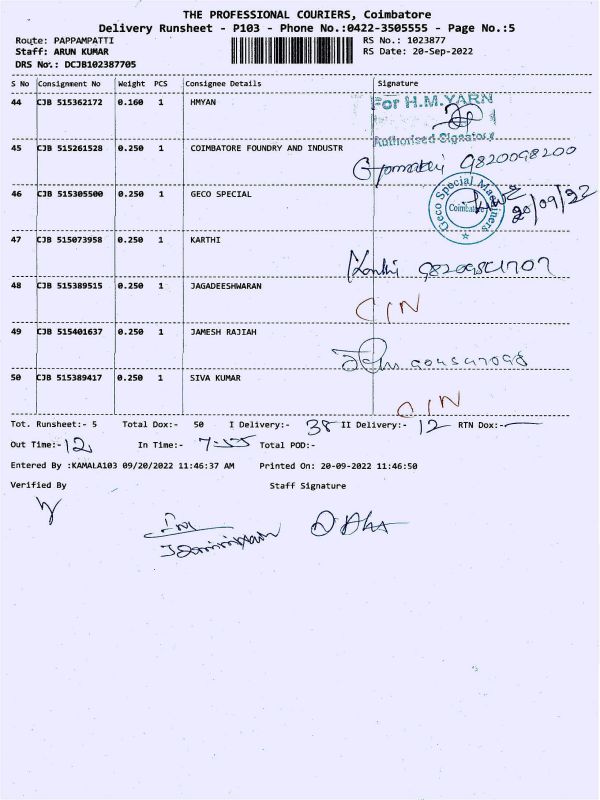 THE PROFESSIONAL COURIERS, Coimbatore
Delivery Runsheet - P103 - Phone No.:0422-3505555 - Page No.:5
Route: PAPPAMPATTI RS No.: 1023877
Staff: ARUN KUMAR RS Date: 20-Sep-2022
DRS No.: DCJB102387705
S No Consignment No Weight PCS Consignee Details Signature
44 CJB 515362172 0.160 1 HMYAN For H.M.YARN
Authorised Signatory
45 CJB 515261528 0.250 1 COIMBATORE FOUNDRY AND INDUSTR 9820098200
46 CJB 515305500 0.250 1 GECO SPECIAL Geco Special Machiners Coimbatore 20/09/22
47 CJB 515073958 0.250 1 KARTHI Karthi
48 CJB 515389515 0.250 1 JAGADEESHWARAN CIN
49 CJB 515401637 0.250 1 JAMESH RAJIAH
50 CJB 515389417 0.250 1 SIVA KUMAR CIN
Tot. Runsheet:- 5 Total Dox:- 50 I Delivery:- 38 II Delivery:- 12 RTN Dox:-
Out Time:- 12 In Time:- 7:55 Total POD:-
Entered By :KAMALA103 09/20/2022 11:46:37 AM Printed On: 20-09-2022 11:46:50
Verified By Staff Signature